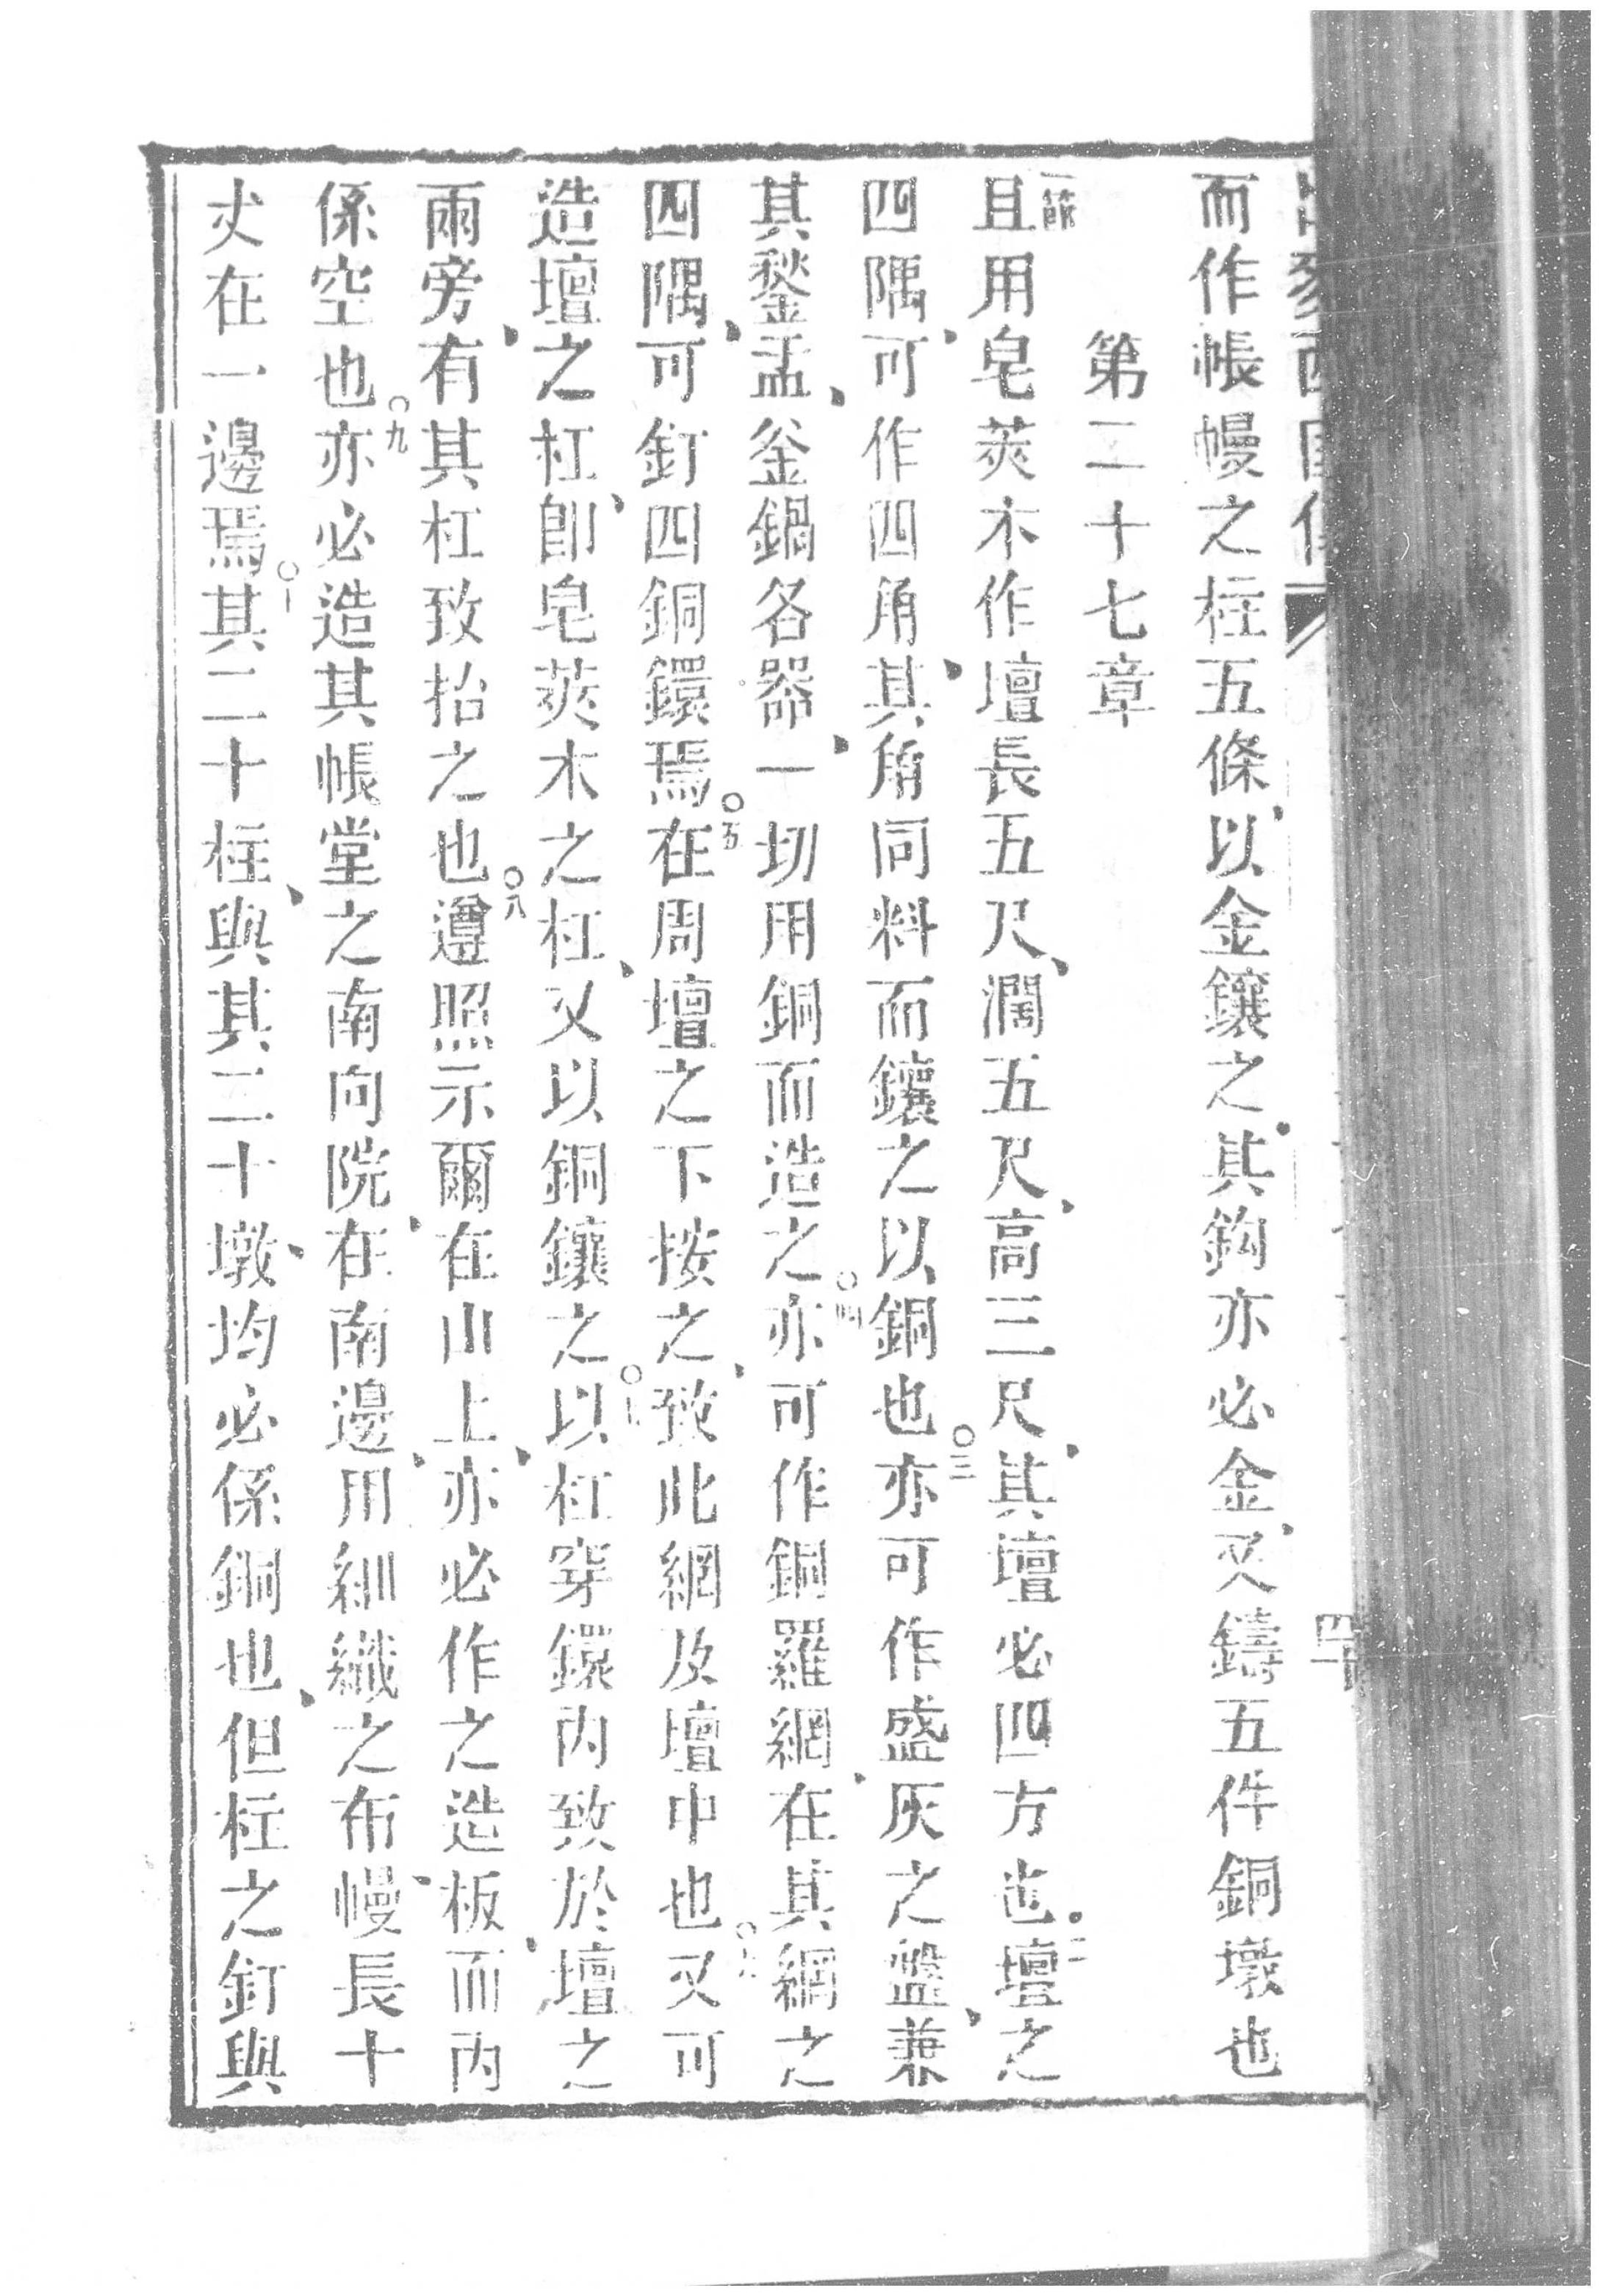 而作帳幔之柱五條以金鑲之其鈎亦必金又鑄五件銅墩也
第二十七章
一節且用皂莢木作壇長五尺濶五尺高三尺其壇必四方也○二壇之
四隅可作四角其角同料而鑲之以銅也○三亦可作盛灰之盤兼
其鍫盂釜鍋各器一切用銅而造之○四亦可作銅羅網在其網之
四隅可釘四銅鐶焉○五在周壇之下按之致此網及壇中也○六又可
造壇之杠卽皂莢木之杠又以銅鑲之○七以杠穿鐶內致於壇之
兩旁有其杠致抬之也○八遵照示爾在山上亦必作之造板而內
係空也○九亦必造其帳堂之南向院在南邊用細織之布幔長十
丈在一邊焉○十其二十柱與其二十墩均必係銅也但柱之釘與